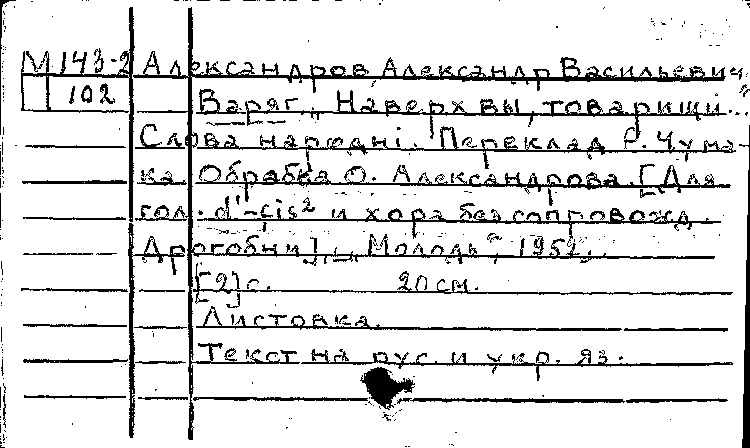 М 143-2 Александров, Александр Васильевич.
102 Варяг. „Наверх вы, товарищи..."
Слова народні. Переклад Є. Чума-
ка. Обрабка О. Александрова. [Для
гол. d¹-cis² и хора без сопровожд.
Дрогобич], „Молодь", 1952.
[2] с. 20 см.
Листовка.
Текст на рус. и укр. яз.